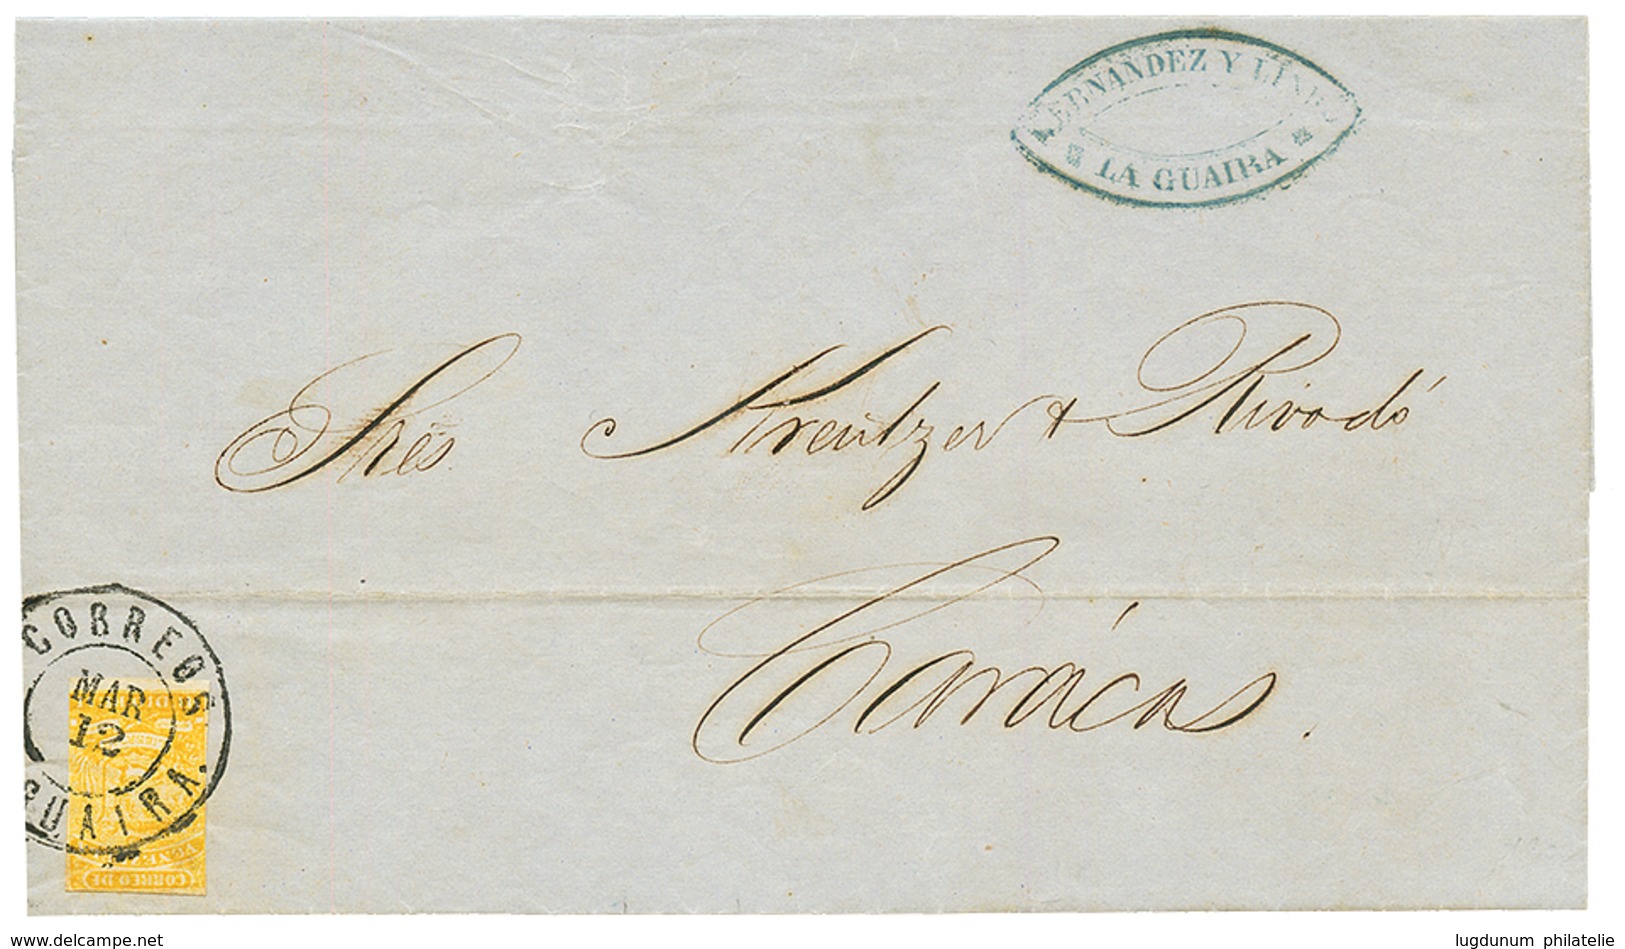 HERNANDEZ Y LINES
* LA GUAIRA *
Sres Kreutzer & Rivodó
Carácas.
CORREOS
MAR
12
GUAIRA.
VENEZ
CORREO DE
www.delcampe.net
lugdunum philatelie